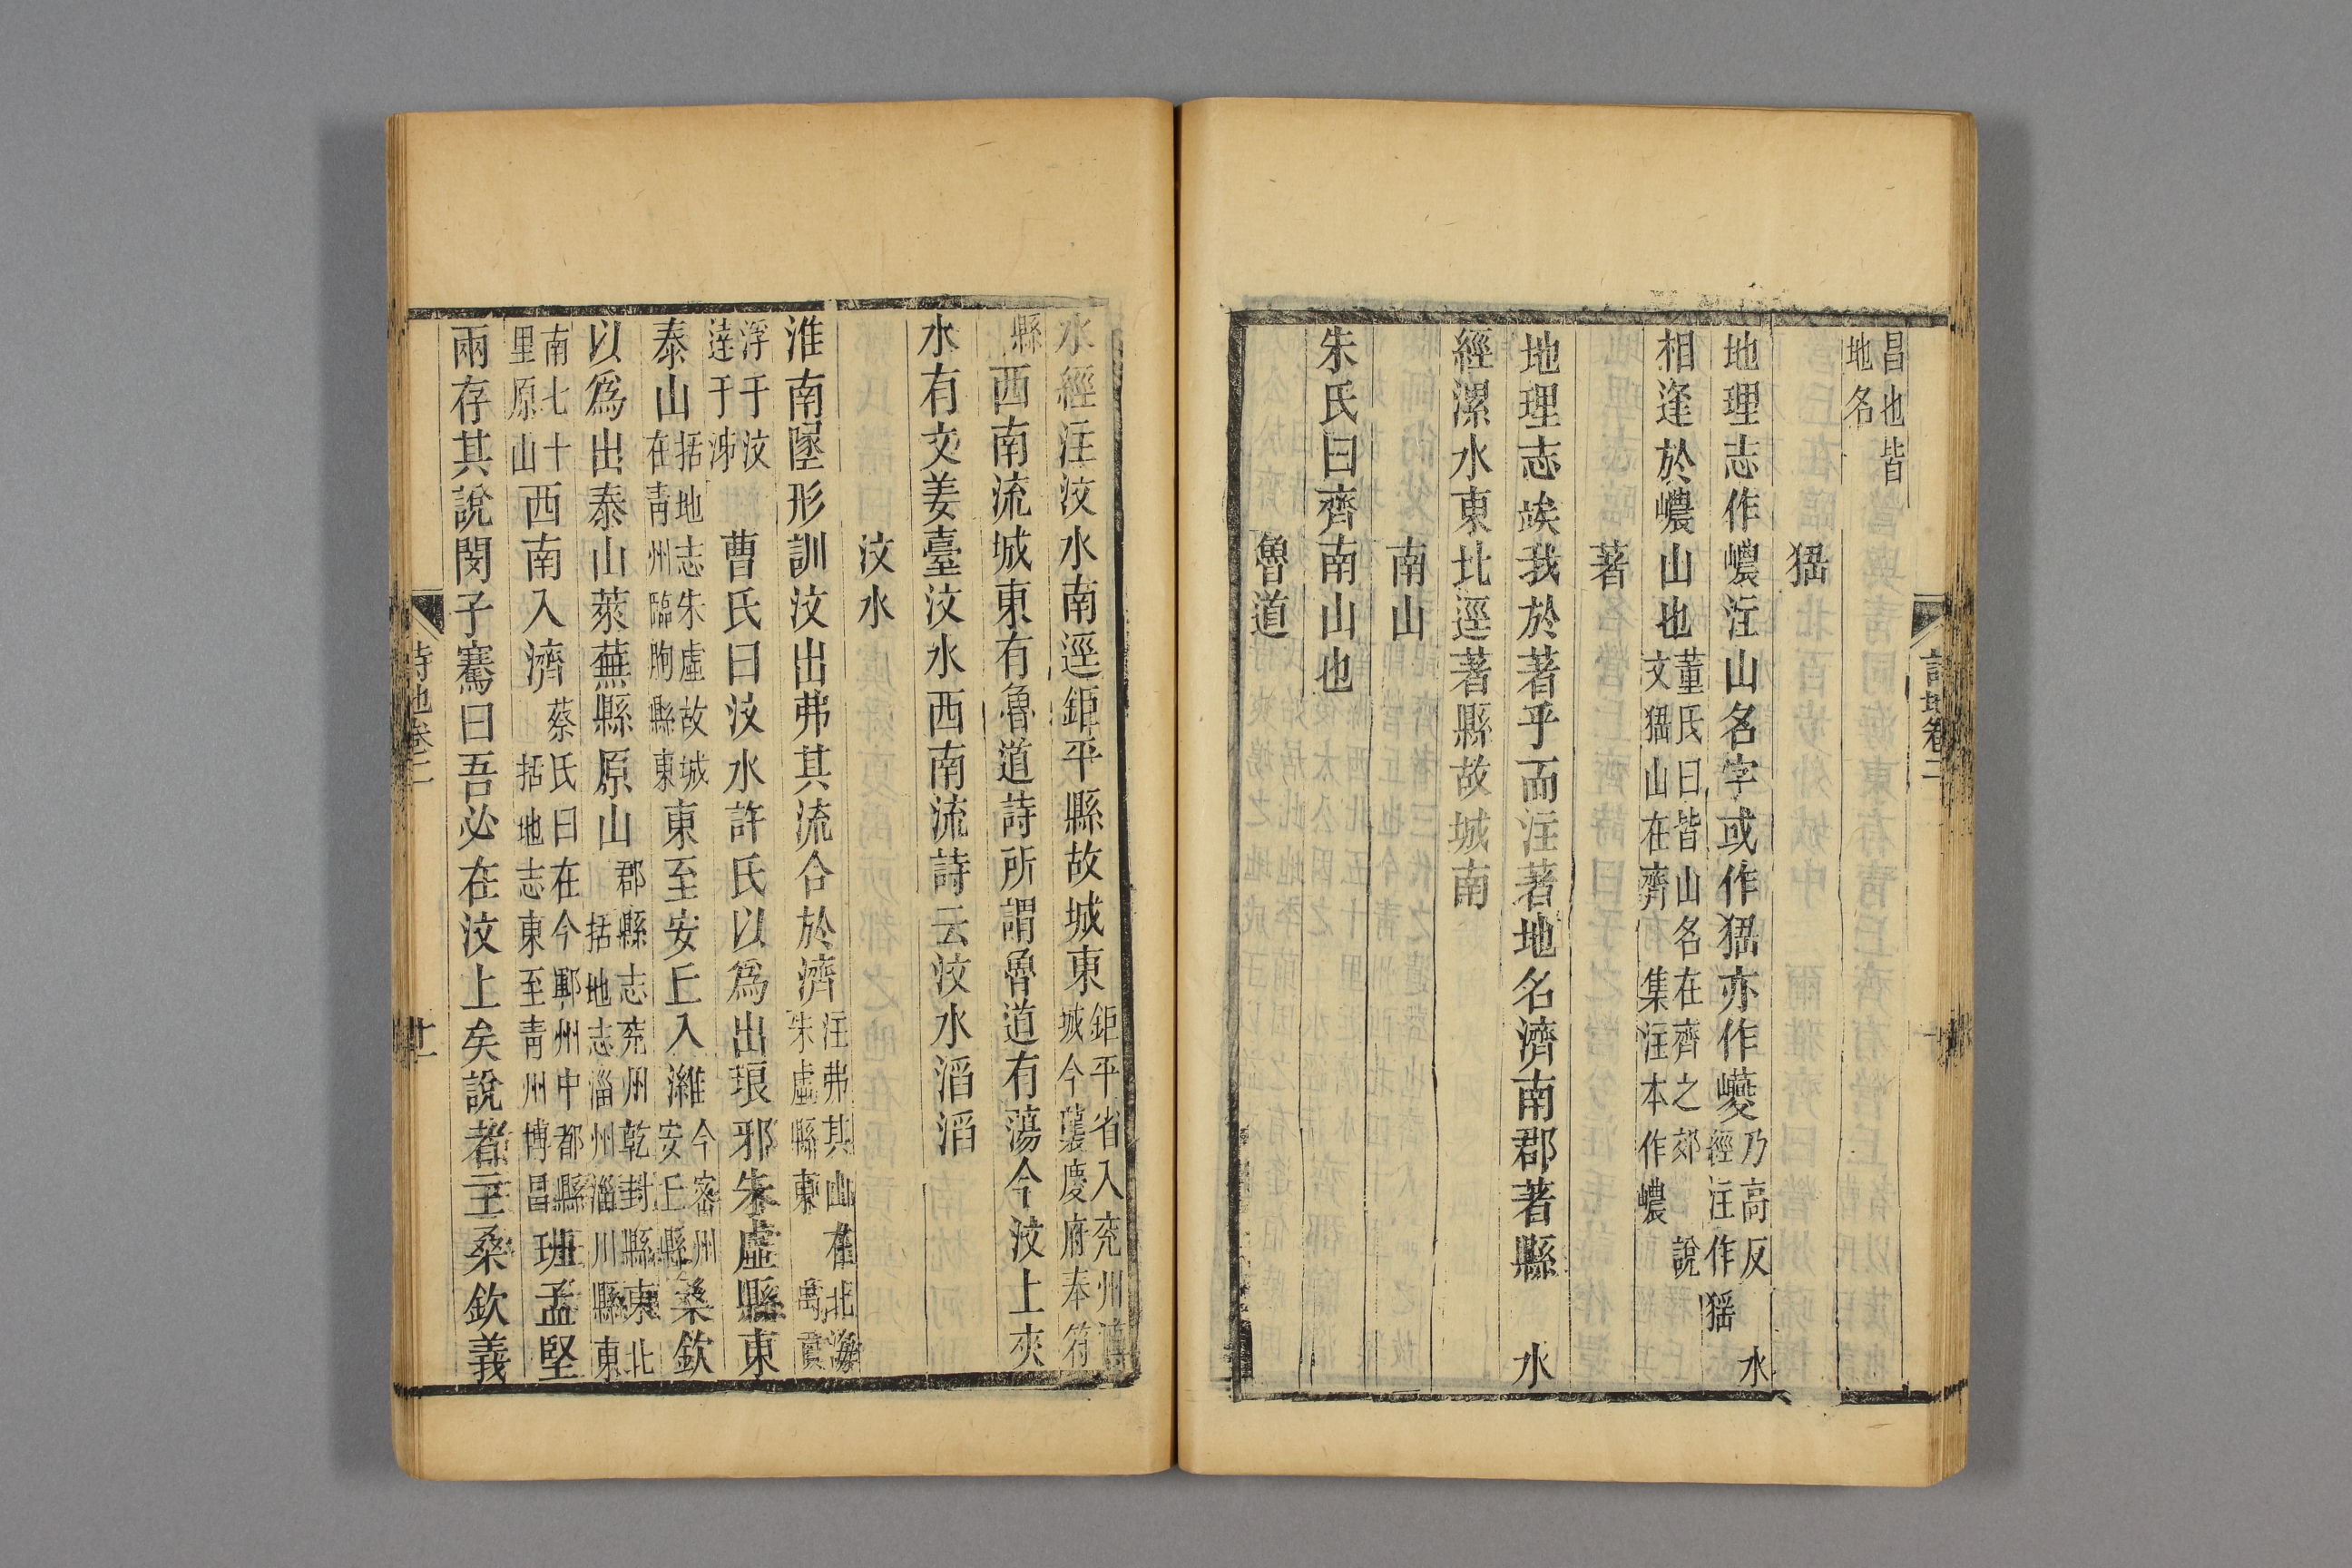 詩地卷二
昌也皆
地名
猺
地理志作巎注山名字或作猺亦作巙乃高反 水
經注作猺
相逢於巎山也董氏曰皆山名在齊之郊 說
文猺山在齊 集注本作巎
著
地理志竢我於著乎而注著地名濟南郡著縣 水
經漯水東北逕著縣故城南
南山
朱氏曰齊南山也
魯道
水經注汶水南逕鉅平縣故城東鉅平省入兗州
城今襲慶府奉符
縣西南流城東有魯道詩所謂魯道有蕩今汶上夾
水有文姜臺汶水西南流詩云汶水滔滔
汶水
淮南墬形訓汶出弗其流合於濟注弗其山在北海
朱虛縣東 禹貢
浮于汶
達于泲
曹氏曰汶水許氏以爲出琅邪朱虛縣東
泰山括地志朱虛故城
在靑州臨朐縣東
東至安丘入濰今密州
安丘縣
桑欽
以爲出泰山萊蕪縣原山郡縣志兗州乾封縣東北
括地志淄州淄川縣東
南七十
里原山
西南入濟蔡氏曰在今鄆州中都縣
括地志東至靑州博昌
班孟堅
兩存其說閔子騫曰吾必在汶上矣說者主桑欽義
詩地卷二
十一